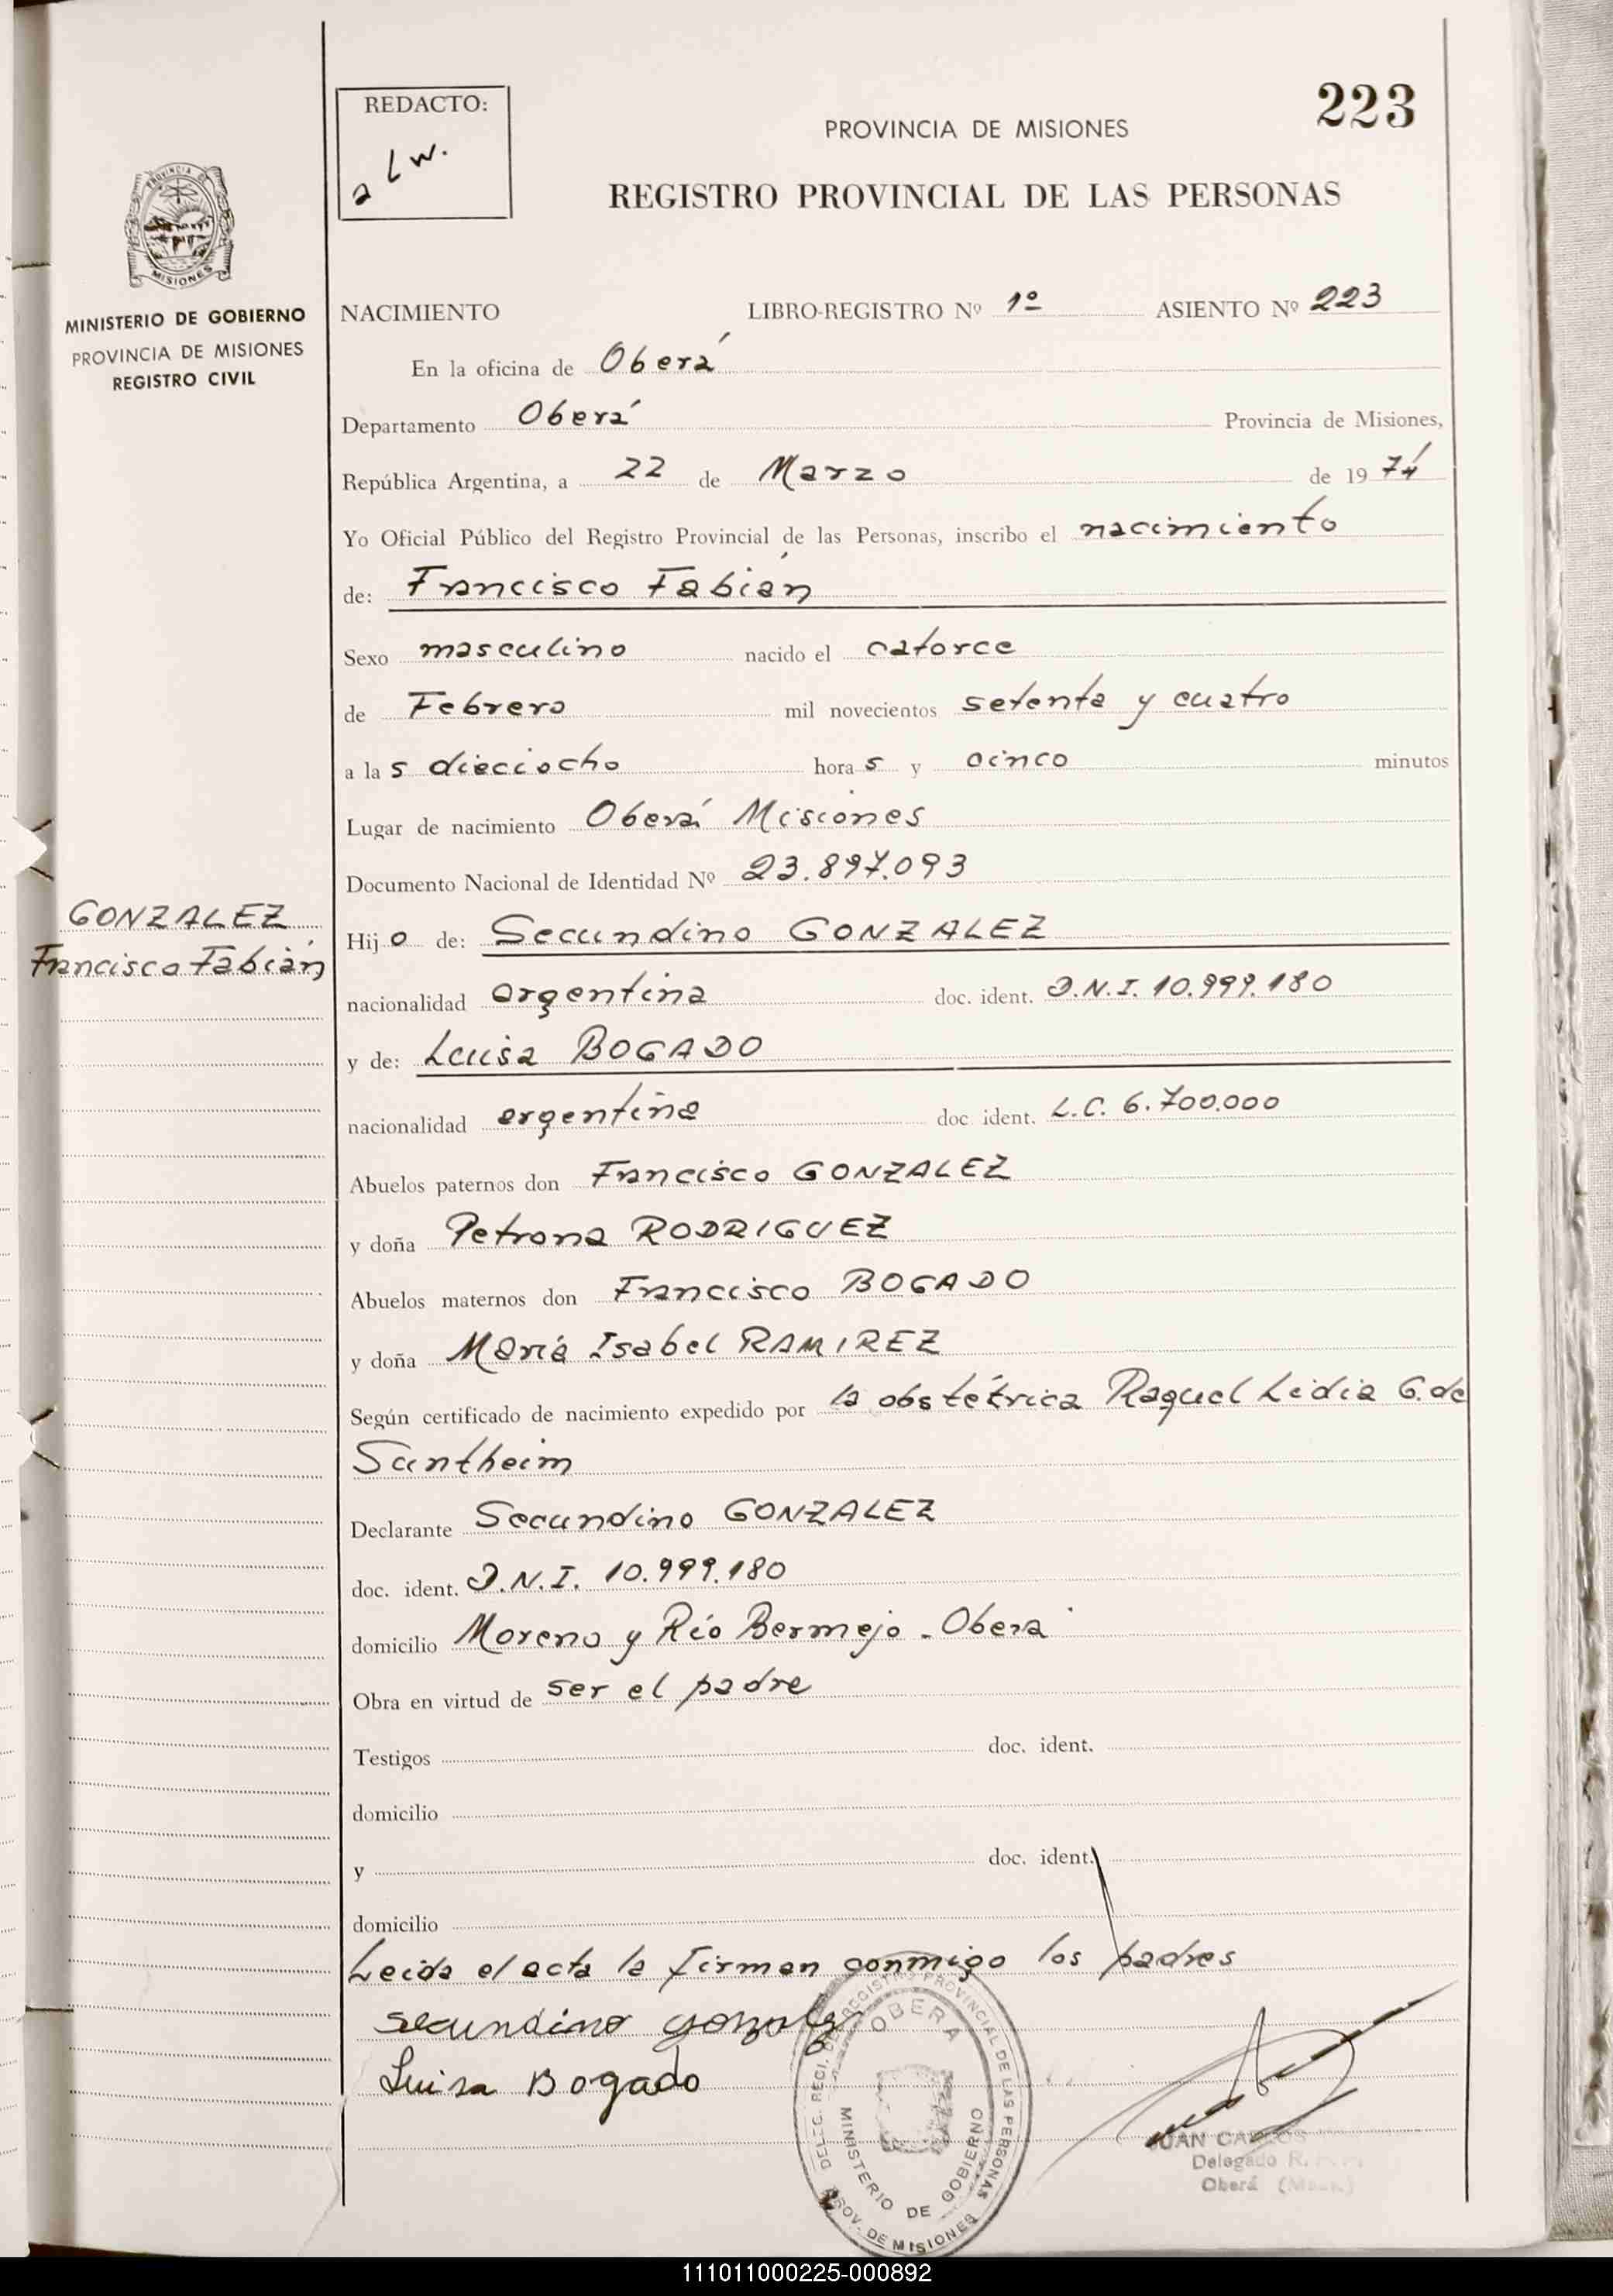 REDACTO:
a Lw.
223
PROVINCIA DE MISIONES
REGISTRO PROVINCIAL DE LAS PERSONAS
PROVINCIA DE
MISIONES
MINISTERIO DE GOBIERNO
PROVINCIA DE MISIONES
REGISTRO CIVIL
NACIMIENTO LIBRO-REGISTRO Nº 1º ASIENTO Nº 223
En la oficina de Oberá
Departamento Oberá Provincia de Misiones,
República Argentina, a 22 de Marzo de 1974
Yo Oficial Público del Registro Provincial de las Personas, inscribo el nacimiento
de: Francisco Fabián
Sexo masculino nacido el catorce
de Febrero mil novecientos setenta y cuatro
a las dieciocho horas y cinco minutos
Lugar de nacimiento Oberá Misiones
Documento Nacional de Identidad Nº 23.897.093
GONZALEZ
Francisco Fabián
Hijo de: Secundino GONZALEZ
nacionalidad argentina doc. ident. D.N.I. 10.999.180
y de: Luisa BOGADO
nacionalidad argentina doc ident. L.C. 6.700.000
Abuelos paternos don Francisco GONZALEZ
y doña Petrona RODRIGUEZ
Abuelos maternos don Francisco BOGADO
y doña María Isabel RAMIREZ
Según certificado de nacimiento expedido por la obstétrica Raquel Lidia G. de
Suntheim
Declarante Secundino GONZALEZ
doc. ident. D.N.I. 10.999.180
domicilio Moreno y Río Bermejo - Oberá
Obra en virtud de ser el padre
Testigos doc. ident.
domicilio
y doc. ident.
domicilio
Leída el acta la firman conmigo los padres
secundino gonzalez
Luisa Bogado
REGISTRO PROVINCIAL DE LAS PERSONAS
OBERA
MINISTERIO DE GOBIERNO
PROV. DE MISIONES
JUAN CARLOS
Delegado R.
Oberá
111011000225-000892